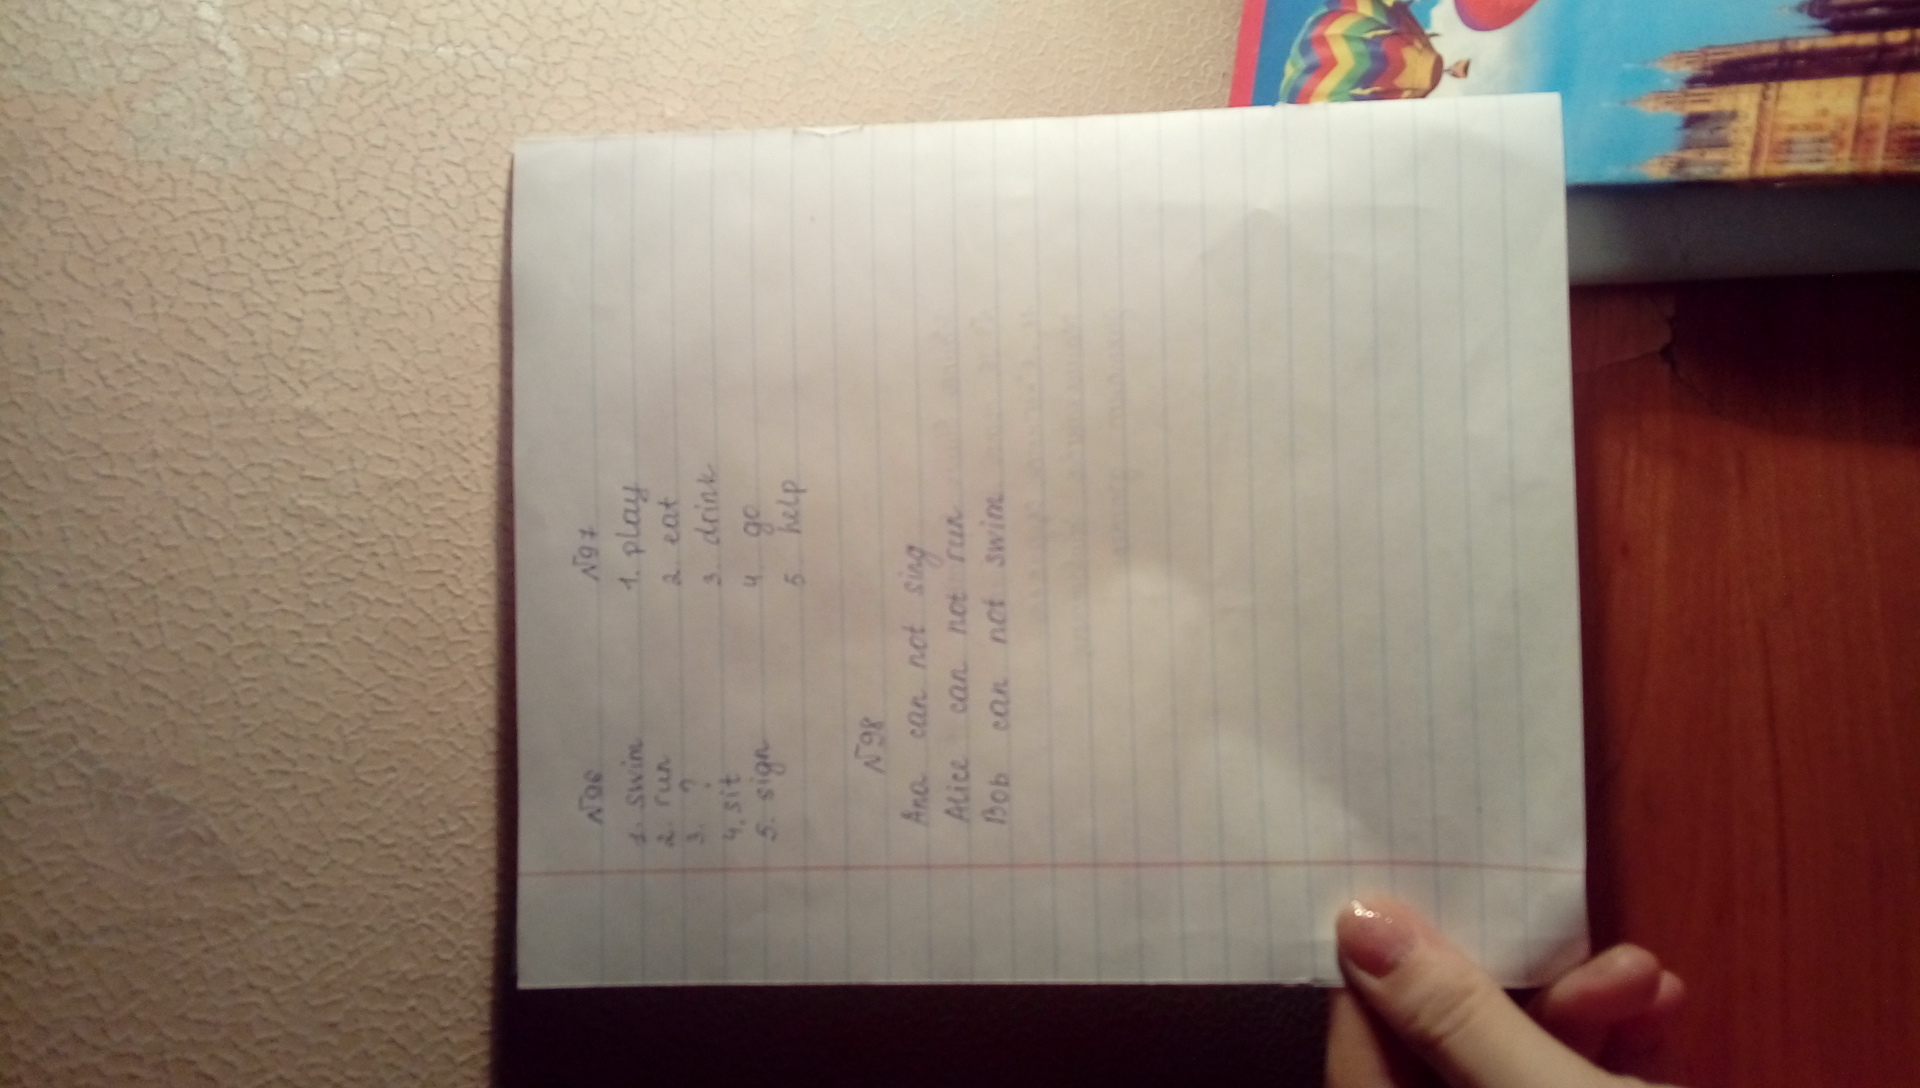 N96 N97
1. swim 1. play
2. run 2 eat
3. ? 3. drink
4. sit 4. go
5. sign 5 help
N98
Ana can not sing
Alice can not run
Bob can not swim